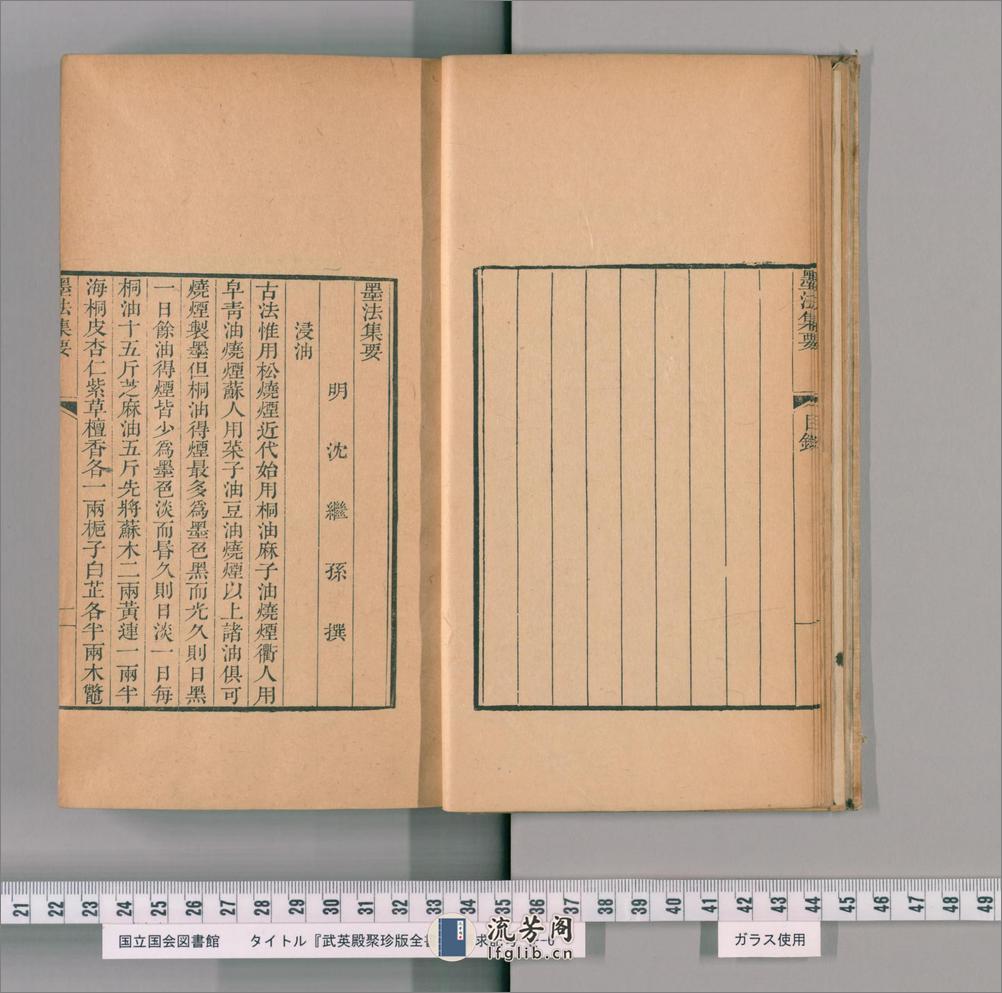 墨法集要
目錄
墨法集要
明 沈 繼 孫 撰
浸油
古法惟用松燒煙近代始用桐油麻子油燒煙衢人用
皁靑油燒煙蘇人用菜子油豆油燒煙以上諸油俱可
燒煙製墨但桐油得煙最多爲墨色黑而光久則日黑
一日餘油得煙皆少爲墨色淡而昬久則日淡一日每
桐油十五斤芝麻油五斤先將蘇木二兩黃連一兩半
海桐皮杏仁紫草檀香各一兩梔子白芷各半兩木鼈
墨法集要
一
21 22 23 24 25 26 27 28 29 30 31 32 33 34 35 36 37 38 39 40 41 42 43 44 45 46 47 48 49
国立国会図書館 タイトル『武英殿聚珍版全
ガラス使用
流芳阁
lfglib.cn